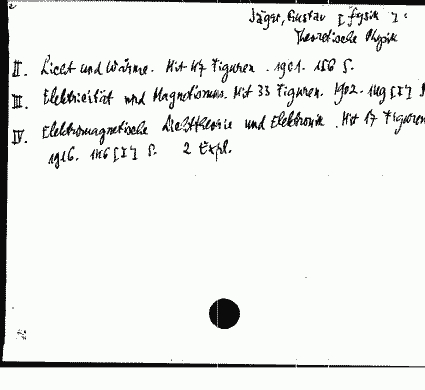 Jäger, Gustav [fysik]:
Theoretische Physik
II. Licht und Wärme. Mit 47 Figuren. 1901. 156 S.
III. Elektricität und Magnetismus. Mit 33 Figuren. 1902. 149 [I] S
IV. Elektromagnetische Lichttheorie und Elektronik. Mit 17 Figuren
1916. 146 [I] S. 2 Expl.